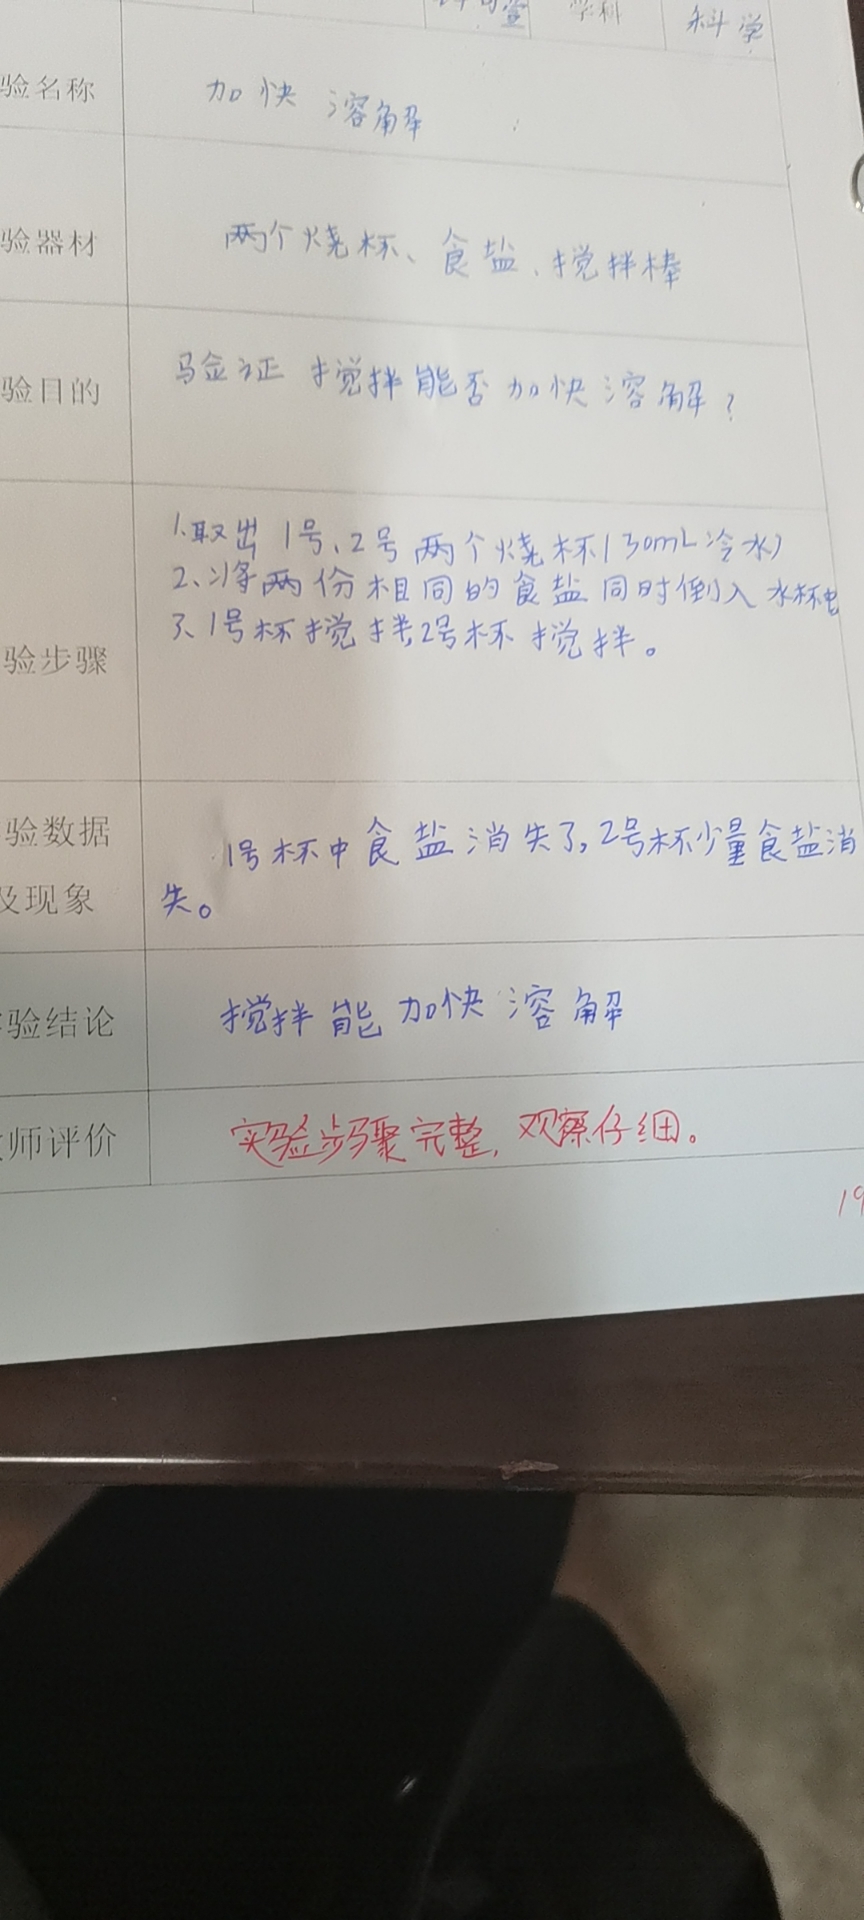 学科 科学
验名称 加快 溶解
验器材 两个烧杯、食盐、搅拌棒
验目的 验证 搅拌能否加快溶解?
1.取出 1号、2号两个烧杯(30mL冷水)
2、将两份相同的食盐同时倒入水杯中
验步骤 3、1号杯搅拌,2号杯搅拌。
验数据 1号杯中食盐消失了,2号杯少量食盐消
及现象 失。
验结论 搅拌能加快溶解
师评价 实验步骤完整,观察仔细。
19